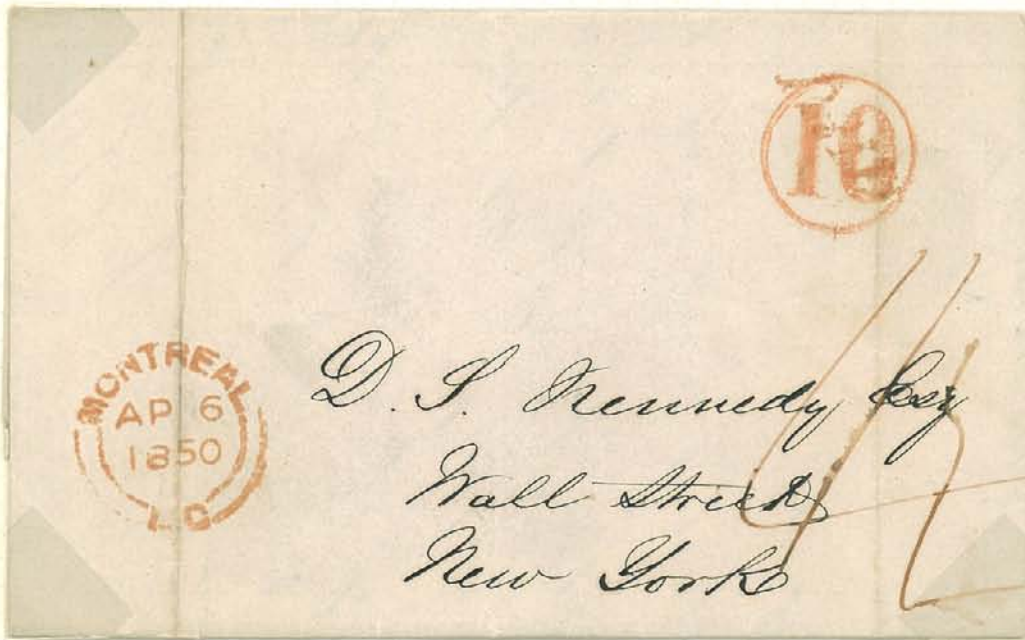 10
MONTREAL
AP 6
1850
L.C
D. S. Kennedy Esq
Wall Street
New York